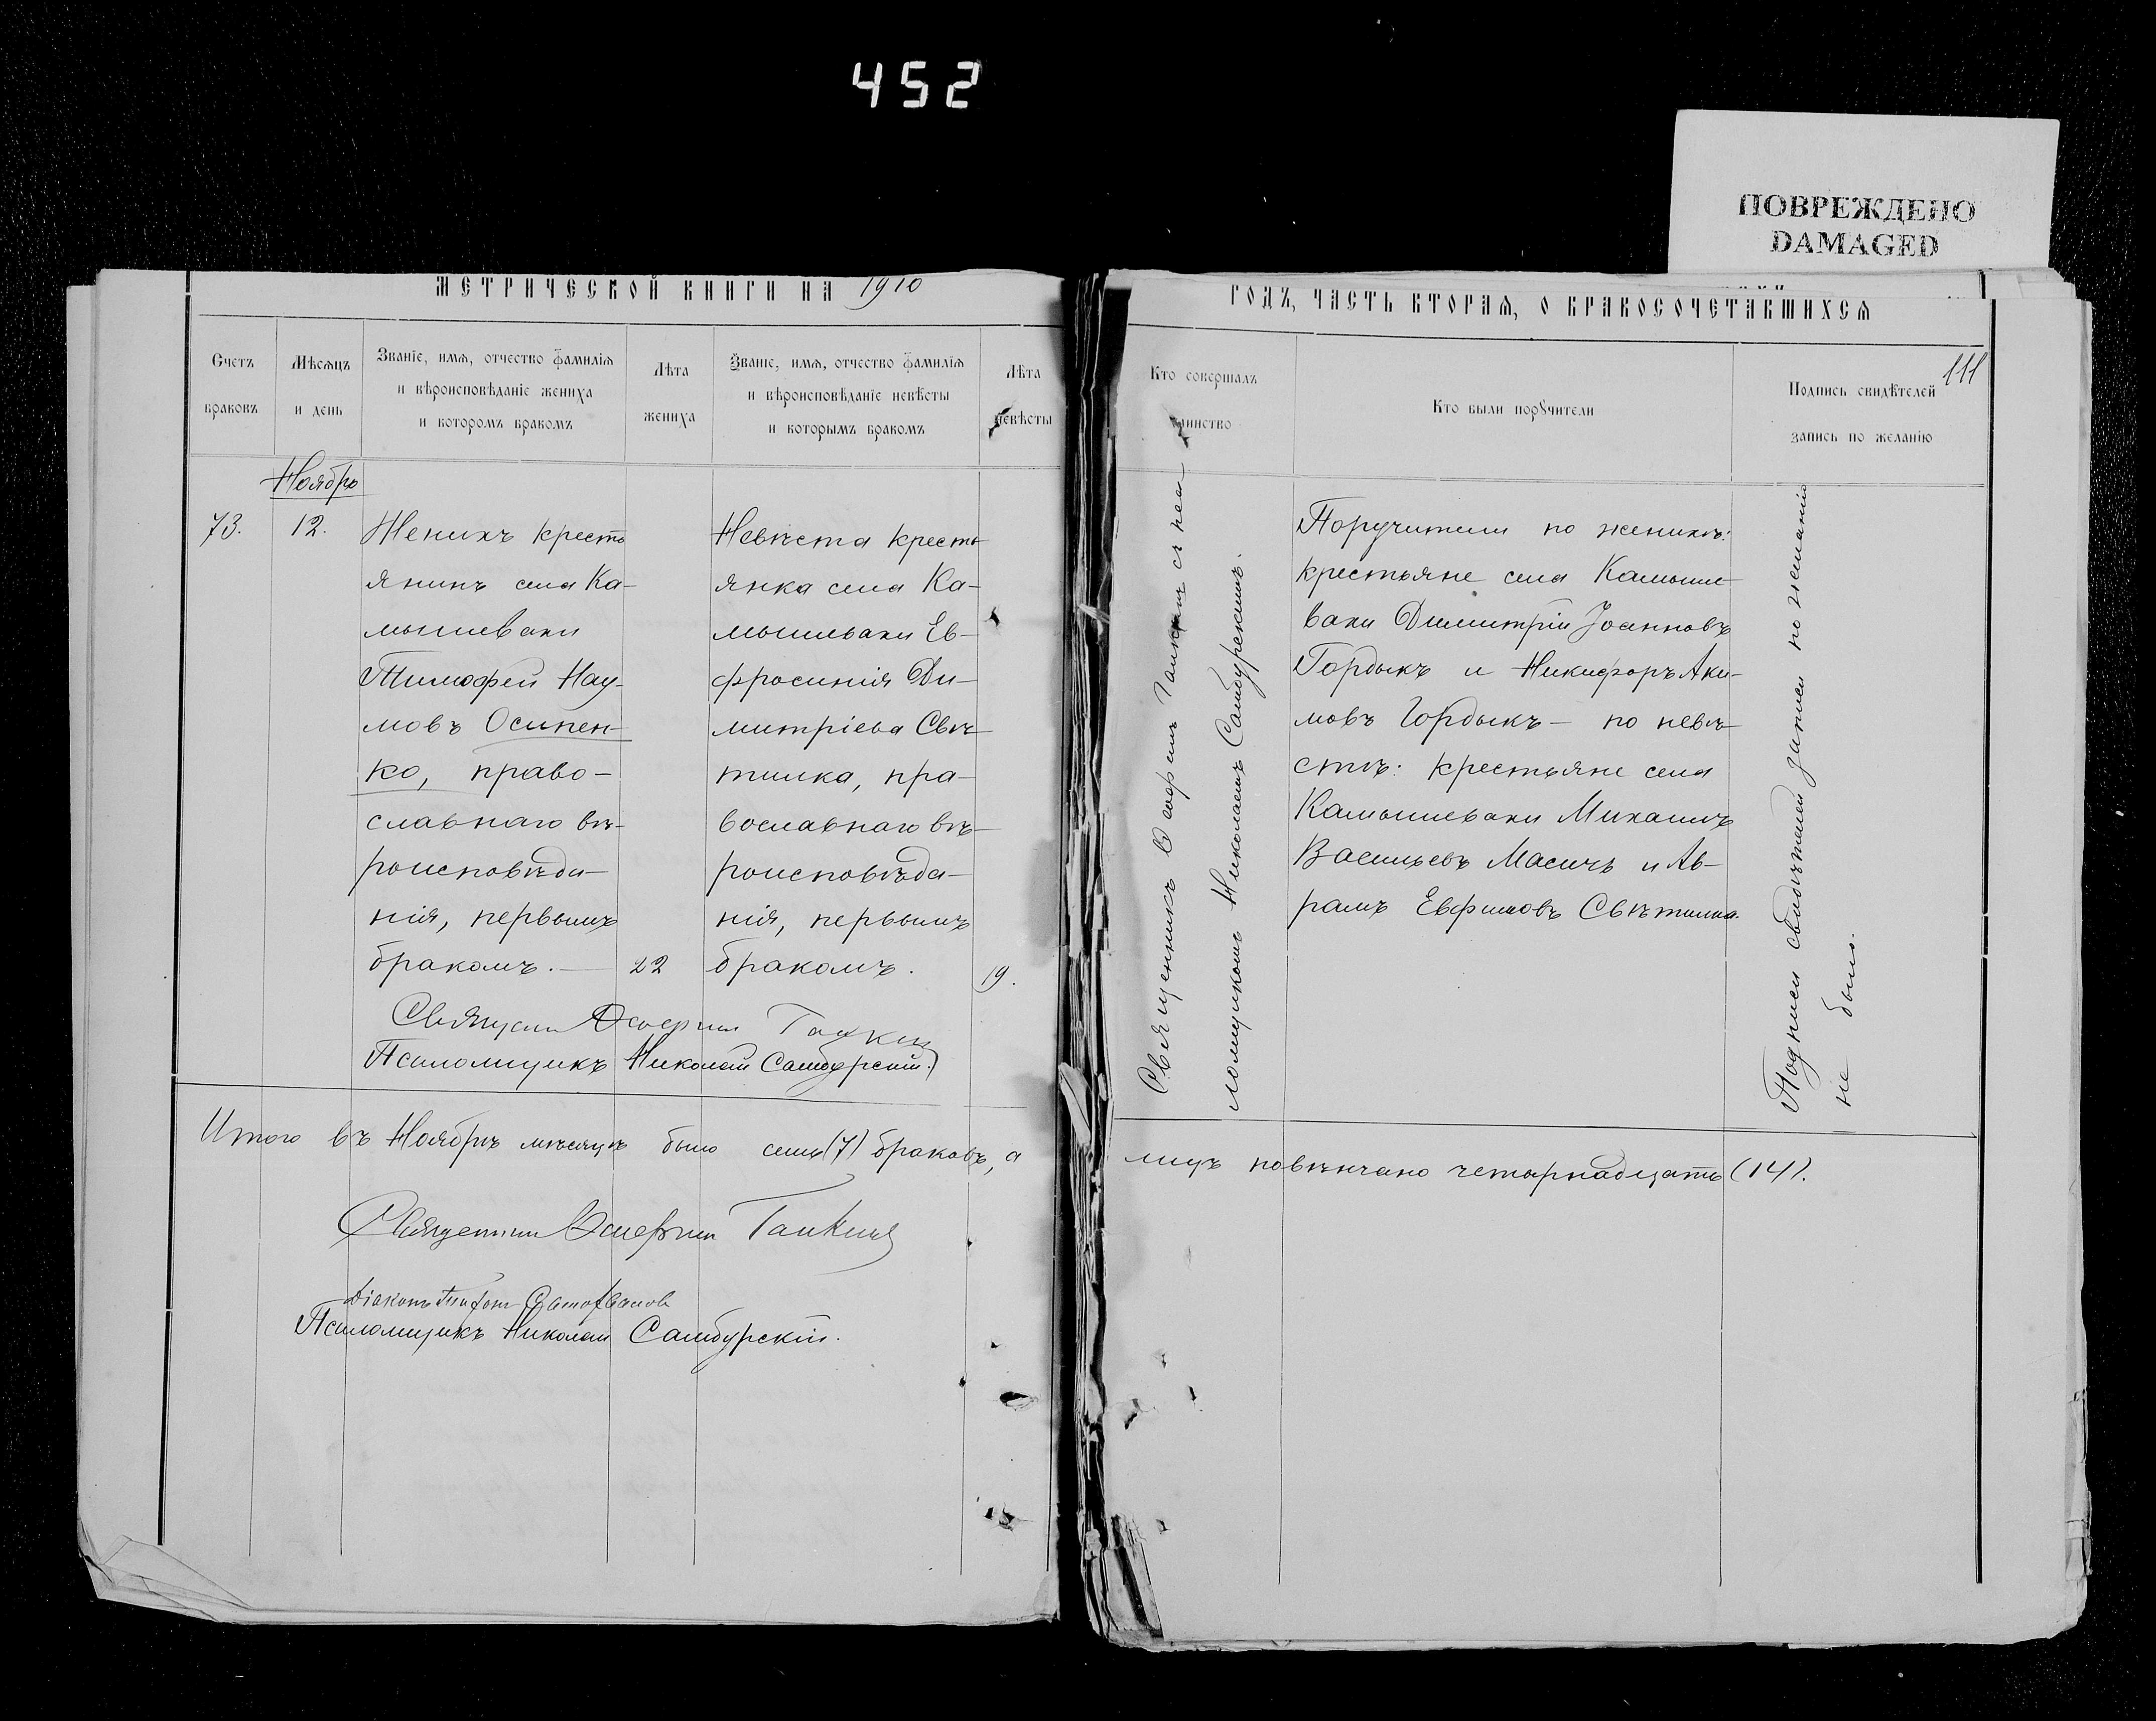 452
ПОВРЕЖДЕНО
DAMAGED
МЕТРИЧЕСКОЙ КНИГИ НА 1910
ГОДЪ, ЧАСТЬ ВТОРАЯ, О БРАКОСОЧЕТАВШИХСЯ
111
Счетъ
браковъ
Мѣсяцъ
и день
Званіе, имя, отчество фамилія
и вѣроисповѣданіе жениха
и которомъ бракомъ
Лѣта
жениха
Званіе, имя, отчество фамилія
и вѣроисповѣданіе невѣсты
и которымъ бракомъ
Лѣта
невѣсты
Кто совершалъ
таинство
Кто были поручители
Подпись свидѣтелей
запись по желанію
Ноябрь
73.
12.
Женихъ кресть
янинъ села Ка-
мышевахи
Тимофей Нау-
мовъ Осипен-
ко, право-
славнаго вѣ-
роисповѣда-
нія, первымъ
бракомъ.—
22
Невѣста кресть-
янка села Ка-
мышевахи Ев-
фросинія Ди-
митріева Свѣ-
тилка, пра-
вославнаго вѣ-
роисповѣда-
нія, первымъ
бракомъ.
19.
Священникъ
Псаломщикъ Николай Самбурскій.
Священникъ
ломщикомъ Николаемъ Самбурскимъ.
Поручители по женихѣ:
крестьяне села Камыше-
вахи Димитрій Іоанновъ
Гордыкъ и Никифоръ Аки-
мовъ Гордыкъ — по невѣ-
стѣ: крестьяне села
Камышевахи Михаилъ
Васильевъ Масичъ и Ав-
рамъ Евфимовъ Свѣтилка.
Подписи свидѣтелей записи по желанію
не было.
Итого въ Ноябрѣ мѣсяцѣ было семь (7) браковъ, а
лицъ повѣнчано четырнадцать (14).
Священникъ
Діаконъ
Псаломщикъ Николай Самбурскій.